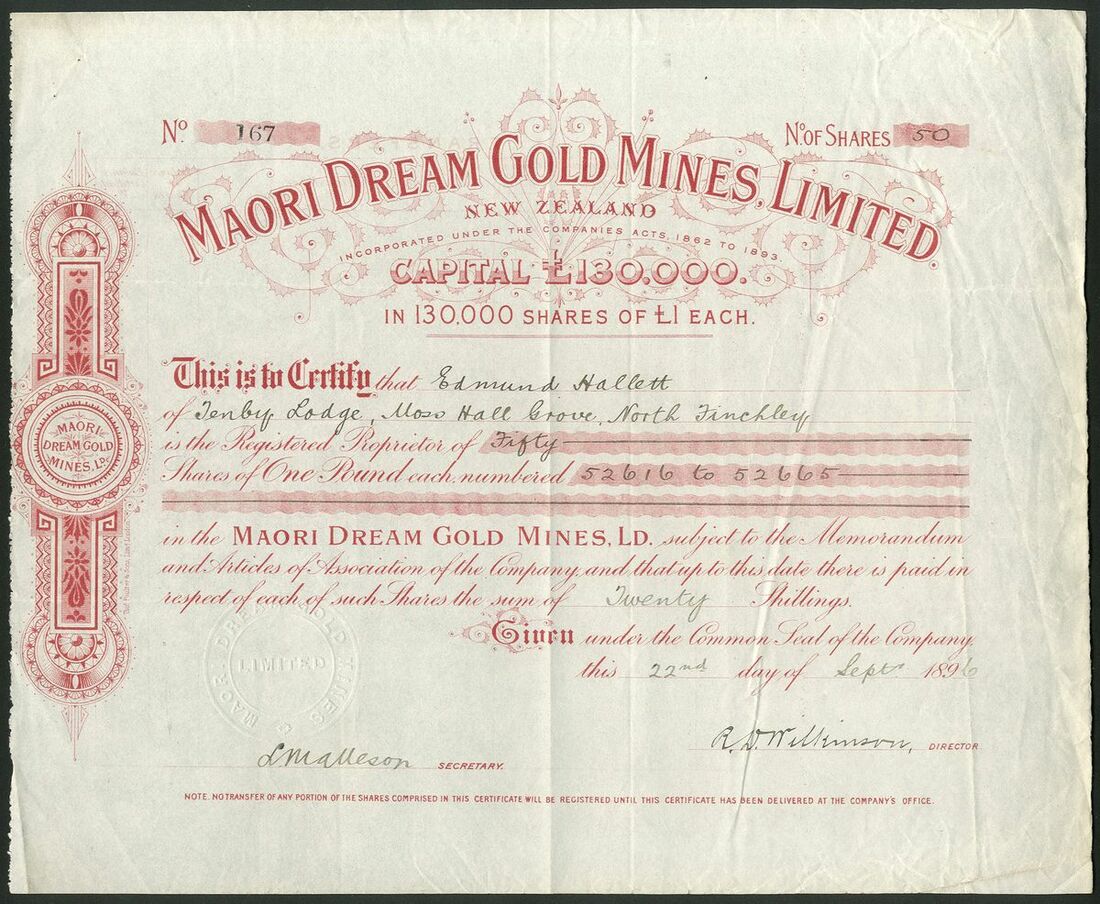 Nº 167
Nº OF SHARES 50
MAORI DREAM GOLD MINES, LIMITED.
NEW ZEALAND
INCORPORATED UNDER THE COMPANIES ACTS, 1862 TO 1893.
CAPITAL £130.000.
IN 130,000 SHARES OF £1 EACH.
This is to Certify that Edmund Hallett
of Tenby Lodge, Moss Hall Grove, North Finchley
is the Registered Proprietor of Fifty
Shares of One Pound each, numbered 52616 to 52665
in the MAORI DREAM GOLD MINES, LD. subject to the Memorandum
and Articles of Association of the Company, and that up to this date there is paid in
respect of each of such Shares the sum of Twenty Shillings.
Given under the Common Seal of the Company
this 22nd day of Sept 1896
R. D. Wilkinson, DIRECTOR
SECRETARY.
NOTE. NO TRANSFER OF ANY PORTION OF THE SHARES COMPRISED IN THIS CERTIFICATE WILL BE REGISTERED UNTIL THIS CERTIFICATE HAS BEEN DELIVERED AT THE COMPANY'S OFFICE.
MAORI
DREAM GOLD
MINES, LD.
MAORI DREAM GOLD MINES
LIMITED